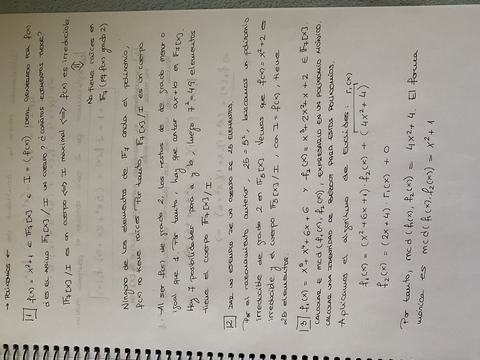 → POLINOMIOS ←
11 f(x) = x²+1 ∈ F₇[x] e I = (f(x)) IDEAL GENERADO POR f(x)
¿ES EL ANILLO F₇[x]/I UN CUERPO? ¿CUÁNTOS ELEMENTOS TIENE?
F₇[x]/I es un cuerpo ⟺ I maximal ⟺ f(x) es irreducible
⇕
No tiene raíces en
F₇ (pq f(x) grado 2)
Ninguno de los elementos de F₇ anula el polinomio,
f(x) no tiene raíces. Por tanto, F₇[x]/I es un cuerpo.
Al ser f(x) de grado 2, los restos de grado menor o
igual que 1. Por tanto, hay que contar ax+b en F₇[x].
Hay 7 posibilidades para a y b, luego 7² = 49 elementos
tiene el cuerpo F₇[x]/I.
12 DAR UN EJEMPLO DE UN CUERPO DE 25 ELEMENTOS.
Por el razonamiento anterior, 25 = 5², buscamos un polinomio
irreducible de grado 2 en F₅[x]. Veamos que f(x) = x²+2 es
irreducible y el cuerpo F₅[x]/I, con I = f(x), tiene
25 elementos
13 f₁(x) = x⁴+6x+6 y f₂(x) = x+2 ∈ F₇[x].
CALCULAR EL mcd(f₁(x), f₂(x)), EXPRESARLO EN UN POLINOMIO MÓNICO.
CALCULAR UNA IDENTIDAD DE BÉZOUT PARA ESTOS POLINOMIOS.
Aplicamos el algoritmo de Euclides: r₁(x)
f₁(x) = (x²+6x+1) f₂(x) + (4x²+4)
f₂(x) = (2x+4) r₁(x) + 0
Por tanto, mcd(f₁(x), f₂(x)) = 4x²+4. El forma
mónica es mcd(f₁(x), f₂(x)) = x²+1